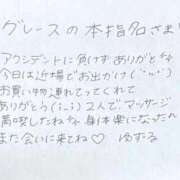 グレースの本指名さま
アクシデントに負けず ありがとな
今日は近場でお出かけ(¨̮)
お買い物連れてってくれて
ありとう(; ;) 2人でマッサージ
満喫したね 身体楽になったれ
また会いに来てね♡ ゆずる